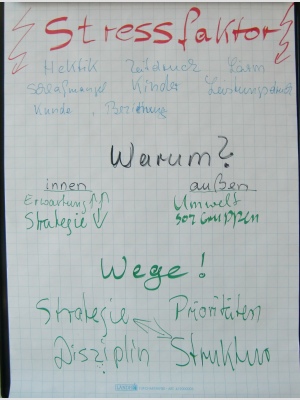 Stressfaktor
Hektik Zeitdruck Lärm
Schlafmangel Kinder Leistungsdruck
Kunde, Beziehung
Warum?
innen außen
Erwartung ↑↑ Umwelt
Strategie ↓ soz Gruppen
Wege!
Strategie Prioritäten
Disziplin Struktur